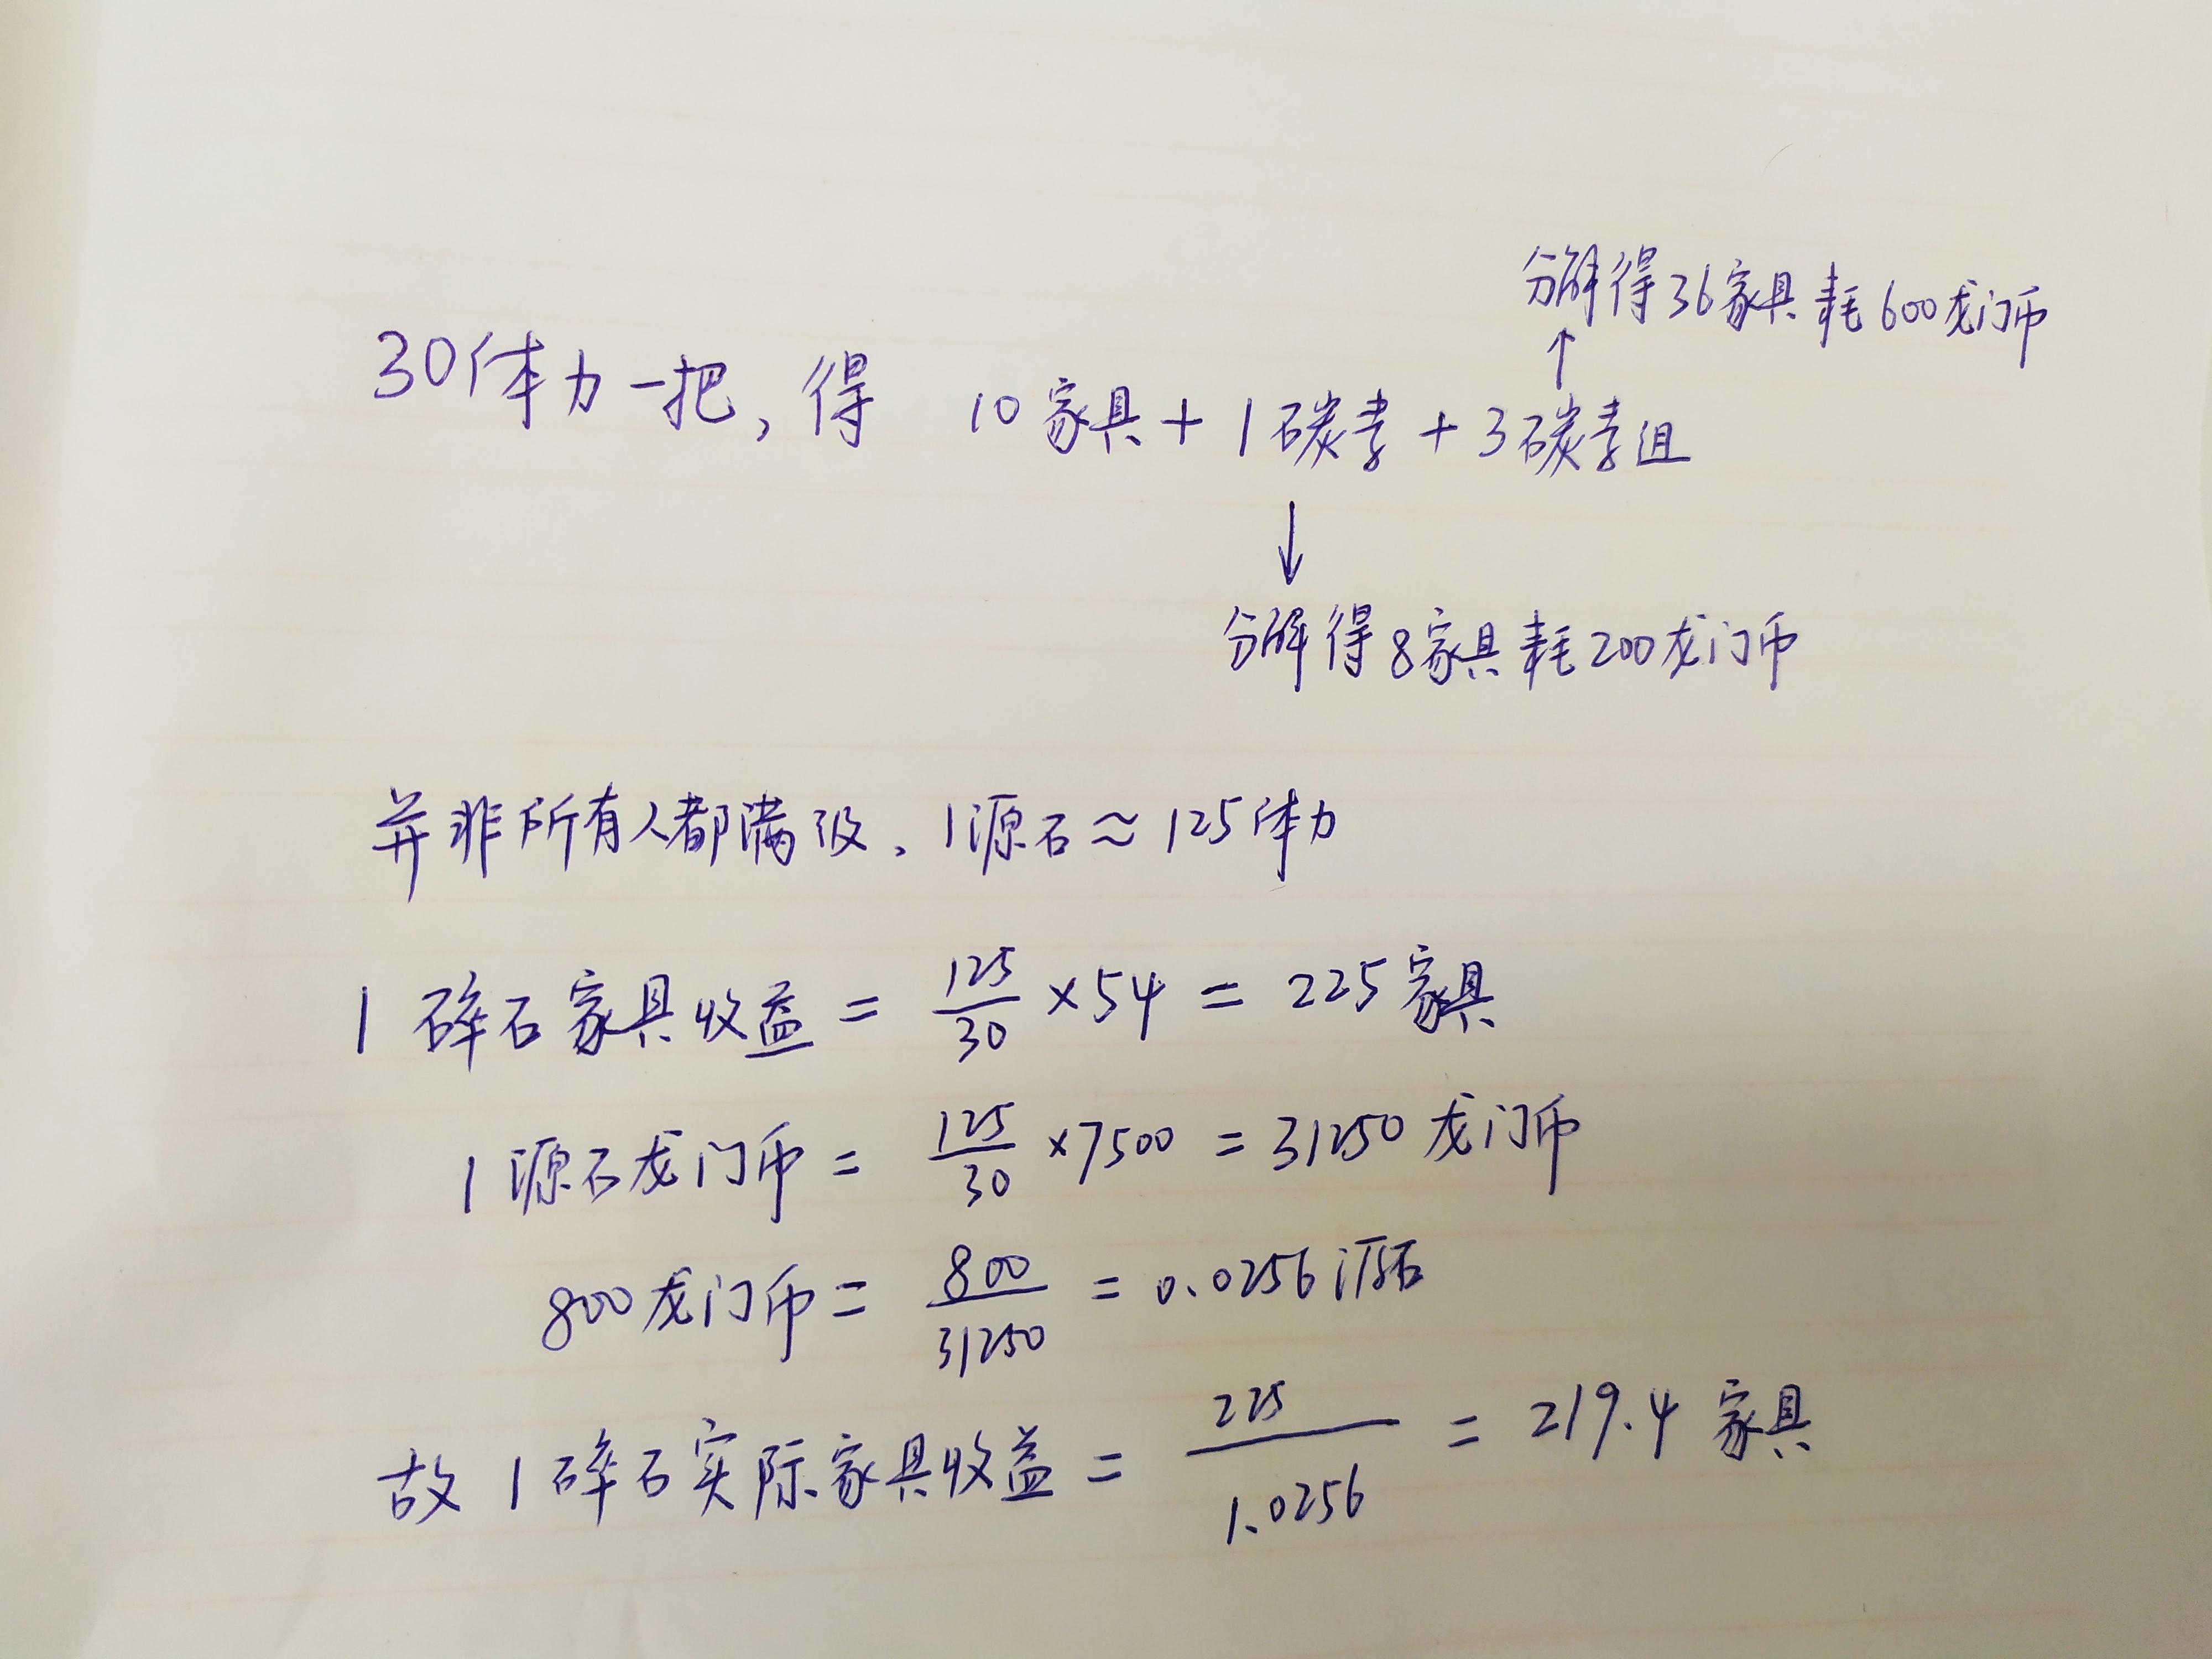 分解得36家具 耗600龙门币
↑
30体力一把,得 10家具+1碳素+3碳素组
↓
分解得8家具耗200龙门币
并非所有人都满级、1源石≈125体力
1碎石家具收益 = 125/30 ×54 = 225家具
1源石龙门币 = 125/30 ×7500 = 31250龙门币
800龙门币 = 800/31250 = 0.0256源石
故1碎石实际家具收益 = 225/1.0256 = 219.4家具